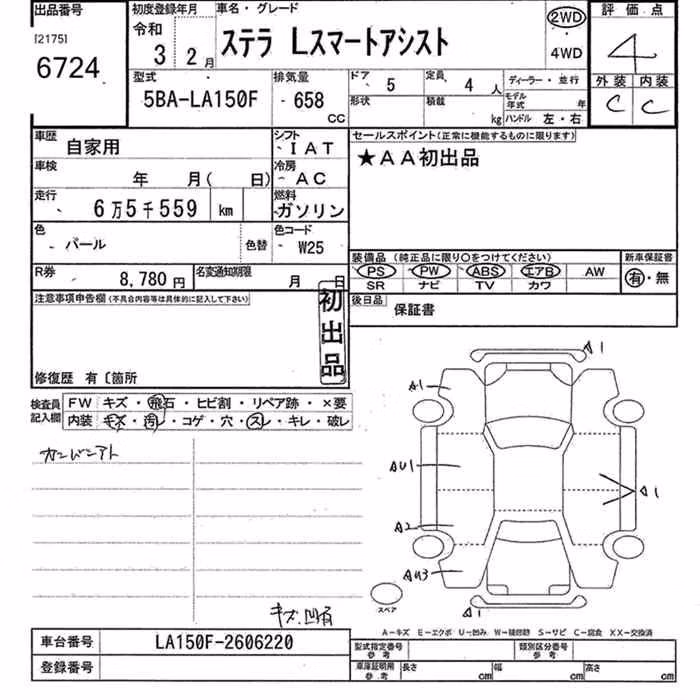 出品番号 初度登録年月 車名・グレード 評価点
[2175] 令和 ステラ Lスマートアシスト 2WD
6724 3 2月 4WD 4
型式 排気量 ドア 5 定員 4人 ディーラー・並行 外装 内装
5BA-LA150F 658 CC 形状 積載 kg モデル年式 年 ハンドル 左・右 C C
車歴 自家用 シフト IAT セールスポイント(正常に機能するものに限ります)
車検 年 月( 日) 冷房 AC ★AA初出品
走行 6万5千559 km 燃料 ガソリン
色 パール 色替 色コード W25
装備品 (純正品に限り○をつけてください) 新車保証書
R券 8,780円 名変通知期限 月 日 PS PW ABS エアB AW 有・無
SR ナビ TV カワ
注意事項申告欄(不具合内容等は具体的に記入して下さい) 初出品 後日品 保証書
修復歴 有〔箇所
検査員記入欄 FW キズ・飛石・ヒビ割・リペア跡・×要
内装 キズ・汚レ・コゲ・穴・スレ・キレ・破レ
A1
A1
AU1
A1
A2
AU3
A1
スペア
キズ、凹有
A-キズ E-エクボ U-凹み S-サビ C-腐食 XX-交換済
車台番号 LA150F-2606220 型式指定番号 参考 類別区分番号 参考
登録番号 車庫証明用 参考 長さ cm 幅 cm 高さ cm